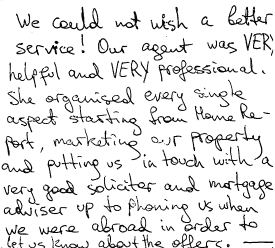 We could not wish a better
service! Our agent was VERY
helpful and VERY professional.
She organised every single
aspect starting from Home Re-
port, marketing our property
and putting us in touch with a
very good solicitor and mortgage
adviser up to phoning us when
we were abroad in order to
let us know about the offers. —